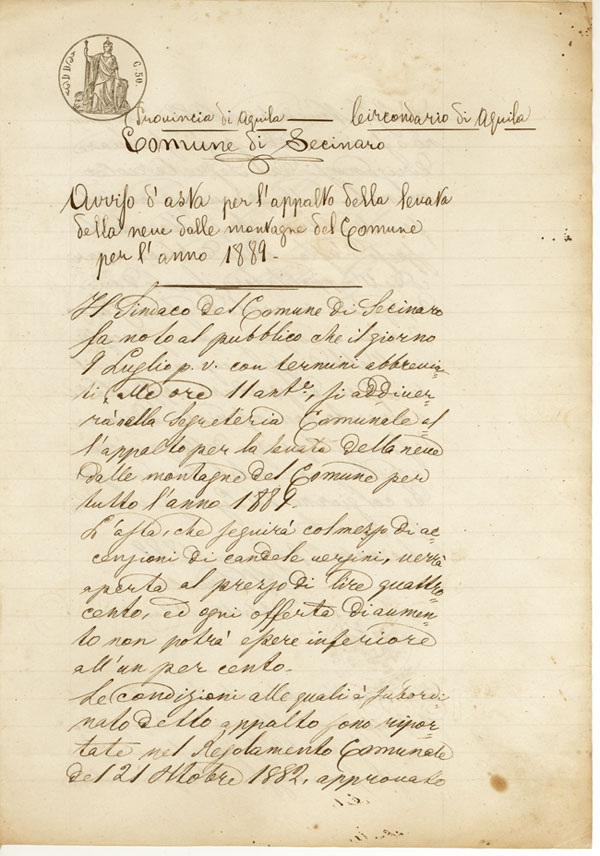 C. 50
Provincia di Aquila — Circondario di Aquila
Comune di Secinaro
Avviso d'asta per l'appalto della levata
della neve dalle montagne del Comune
per l'anno 1889.
Il Sindaco del Comune di Secinaro
fa noto al pubblico che il giorno
9 Luglio p. v. con termini abbrevia-
ti, alle ore 11 ant.e, si addiver-
rà nella Segreteria Comunale al-
l'appalto per la levata della neve
dalle montagne del Comune per
tutto l'anno 1889.
L'asta, che seguirà col mezzo di ac-
censioni di candele vergini, verrà
aperta al prezzo di lire quattro-
cento, ed ogni offerta di aumen-
to non potrà essere inferiore
all'un per cento.
Le condizioni alle quali è subordi-
nato detto appalto sono ripor-
tate nel Regolamento Comunale
del 21 Ottobre 1882, approvato